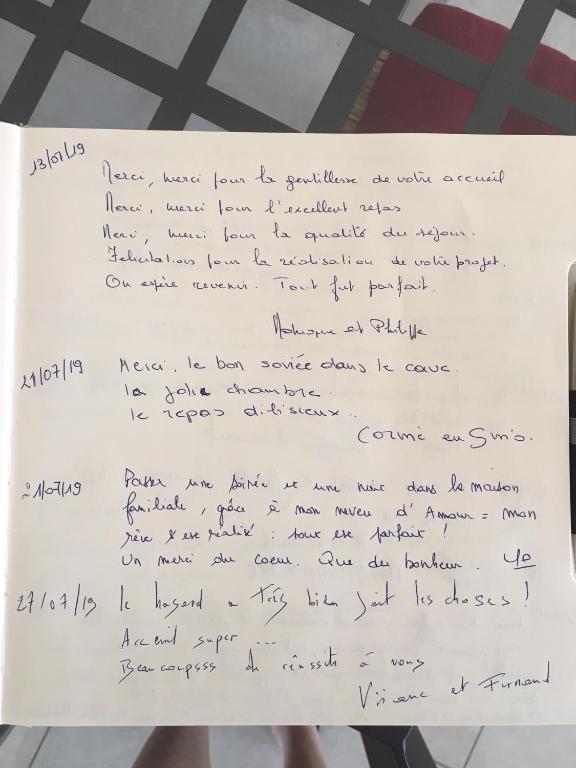 13/07/19
Merci, merci pour la gentillesse de votre accueil
Merci, merci pour l'excellent repas
Merci, merci pour la qualité du séjour.
Felicitations pour la réalisation de votre projet.
On espère revenir. Tout fut parfait.
Monique et Philippe
21/07/19 Merci, le bon soirée dans le cave.
la jolie chambre.
le repos dilisieux..
en
21/07/19 Passer une soirée et une nuit dans la maison
familiale, grâce à mon neveu d'Amour = mon
rêve s'est réalisé : tout est parfait !
Un merci du coeur. Que du bonheur.
27/07/19 le hasard a très bien fait les choses !
Accueil super ...
Beaucoupsss de réussite à vous
et Fernand